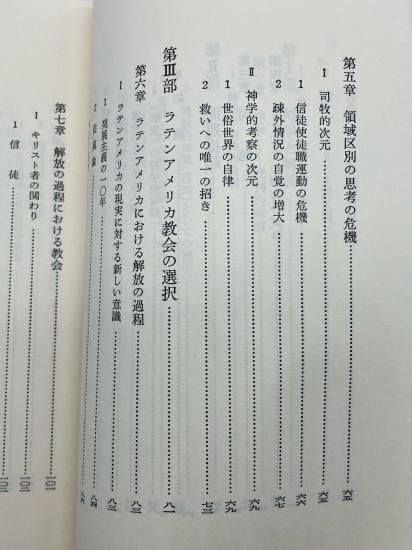 第五章　領域区別の思考の危機……六五
Ⅰ　司牧的次元……六五
1　信徒使徒職運動の危機……六六
2　疎外情況の自覚の増大……六七
Ⅱ　神学的考察の次元……六九
1　世俗世界の自律……六九
2　救いへの唯一の招き……七三
第Ⅲ部　ラテンアメリカ教会の選択……八一
第六章　ラテンアメリカにおける解放の過程……八三
Ⅰ　ラテンアメリカの現実に対する新しい意識……八三
1　発展主義の一〇年……八四
2　従属論……八六
第七章　解放の過程における教会……一〇一
Ⅰ　キリスト者の関わり……一〇一
1　信徒……一〇二